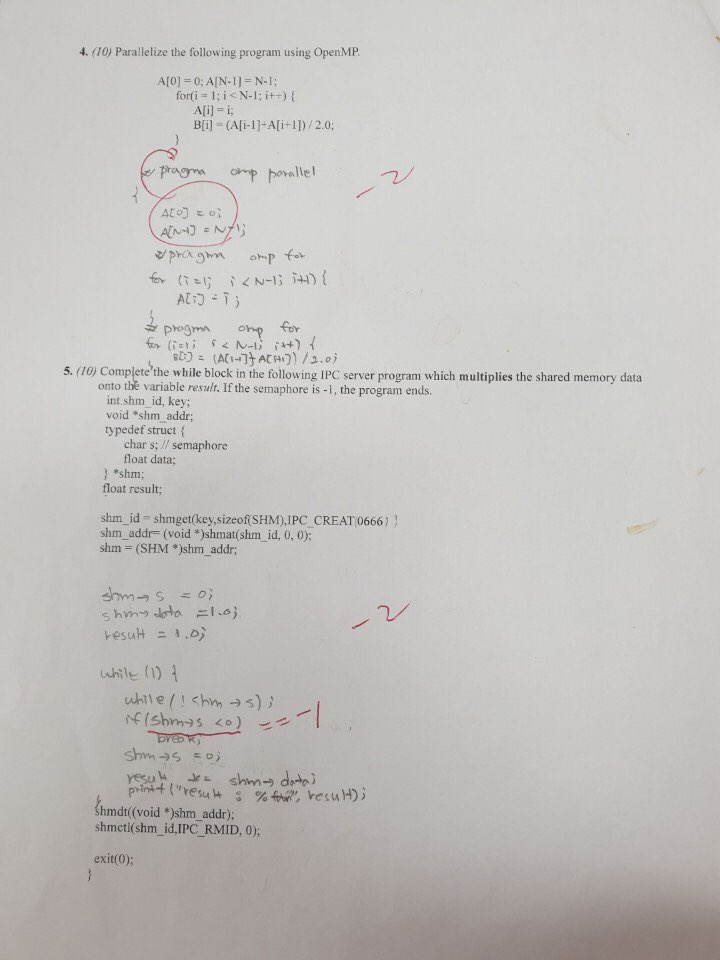 4. (10) Parallelize the following program using OpenMP.
A[0] = 0; A[N-1] = N-1;
for(i = 1; i < N-1; i++) {
A[i] = i;
B[i] = (A[i-1]+A[i+1]) / 2.0;
}
# pragma omp parallel
-2
{
A[0] = 0;
A[N-1] = N-1;
# pragma omp for
for (i=1; i < N-1; i++) {
A[i] = i;
}
# pragma omp for
for (i=1; i < N-1; i++) {
B[i] = (A[i-1]+A[i+1]) / 2.0;
5. (10) Complete the while block in the following IPC server program which multiplies the shared memory data
onto the variable result. If the semaphore is -1, the program ends.
int shm_id, key;
void *shm_addr;
typedef struct {
char s; // semaphore
float data;
} *shm;
float result;
shm_id = shmget(key,sizeof(SHM),IPC_CREAT|0666)
shm_addr= (void *)shmat(shm_id, 0, 0);
shm = (SHM *)shm_addr;
shm→s = 0;
shm→data = 1.0;
-2
result = 1.0;
while (1) {
while (! shm→s);
if (shm→s <0) == -1
break;
shm→s = 0;
result *= shm→data;
printf ("result : % ", result);
}
shmdt((void *)shm_addr);
shmctl(shm_id,IPC_RMID, 0);
exit(0);
}